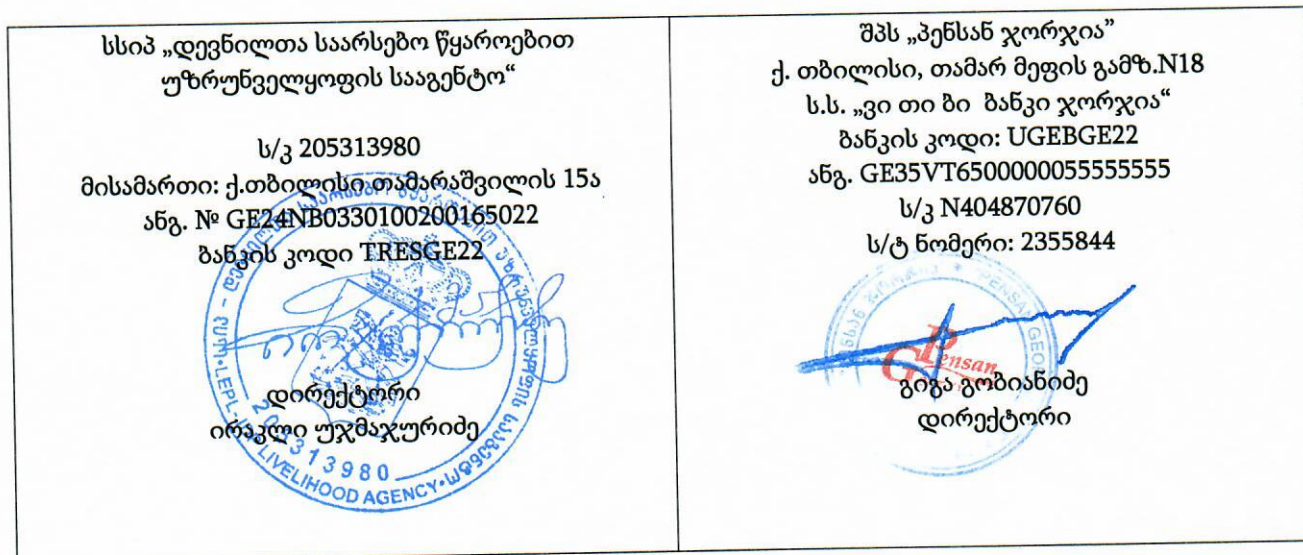 სსიპ „დევნილთა საარსებო წყაროებით
უზრუნველყოფის სააგენტო“
ს/კ 205313980
მისამართი: ქ.თბილისი თამარაშვილის 15ა
ანგ. № GE24NB0330100200165022
ბანკის კოდი TRESGE22
დირექტორი
ირაკლი უჯმაჯურიძე
205313980
LEPL-IDP LIVELIHOOD AGENCY
შპს „პენსან ჯორჯია”
ქ. თბილისი, თამარ მეფის გამზ.N18
ს.ს. „ვი თი ბი ბანკი ჯორჯია“
ბანკის კოდი: UGEBGE22
ანგ. GE35VT6500000055555555
ს/კ N404870760
ს/ტ ნომერი: 2355844
PENSAN GEOR
Pensan
გიგა გობიანიძე
დირექტორი